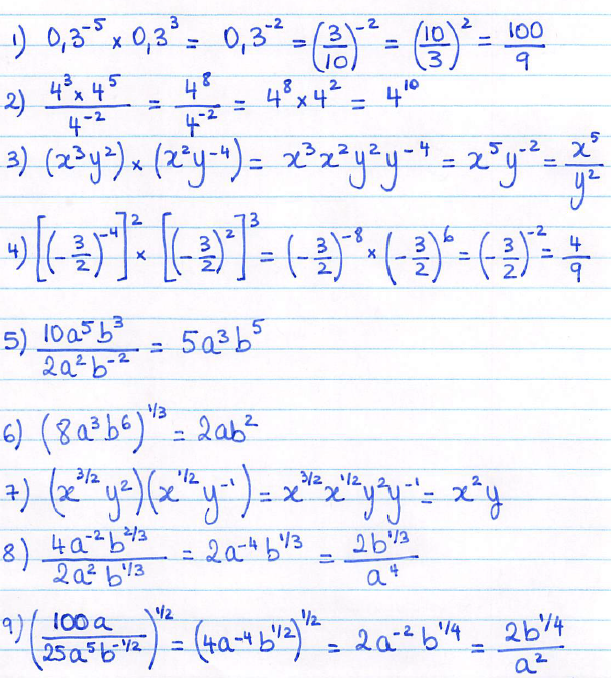 1) 0,3⁻⁵ × 0,3³ = 0,3⁻² = (3/10)⁻² = (10/3)² = 100/9
2) (4³ × 4⁵)/4⁻² = 4⁸/4⁻² = 4⁸ × 4² = 4¹⁰
3) (x³y²) × (x²y⁻⁴) = x³x²y²y⁻⁴ = x⁵y⁻² = x⁵/y²
4) [(-3/2)⁻⁴]² × [(-3/2)²]³ = (-3/2)⁻⁸ × (-3/2)⁶ = (-3/2)⁻² = 4/9
5) 10a⁵b³/2a²b⁻² = 5a³b⁵
6) (8a³b⁶)^1/3 = 2ab²
7) (x^3/2 y²)(x^1/2 y⁻¹) = x^3/2 x^1/2 y²y⁻¹ = x²y
8) 4a⁻²b^2/3 / 2a²b^1/3 = 2a⁻⁴b^1/3 = 2b^1/3 / a⁴
9) (100a / 25a⁵b^-1/2)^1/2 = (4a⁻⁴b^1/2)^1/2 = 2a⁻²b^1/4 = 2b^1/4 / a²